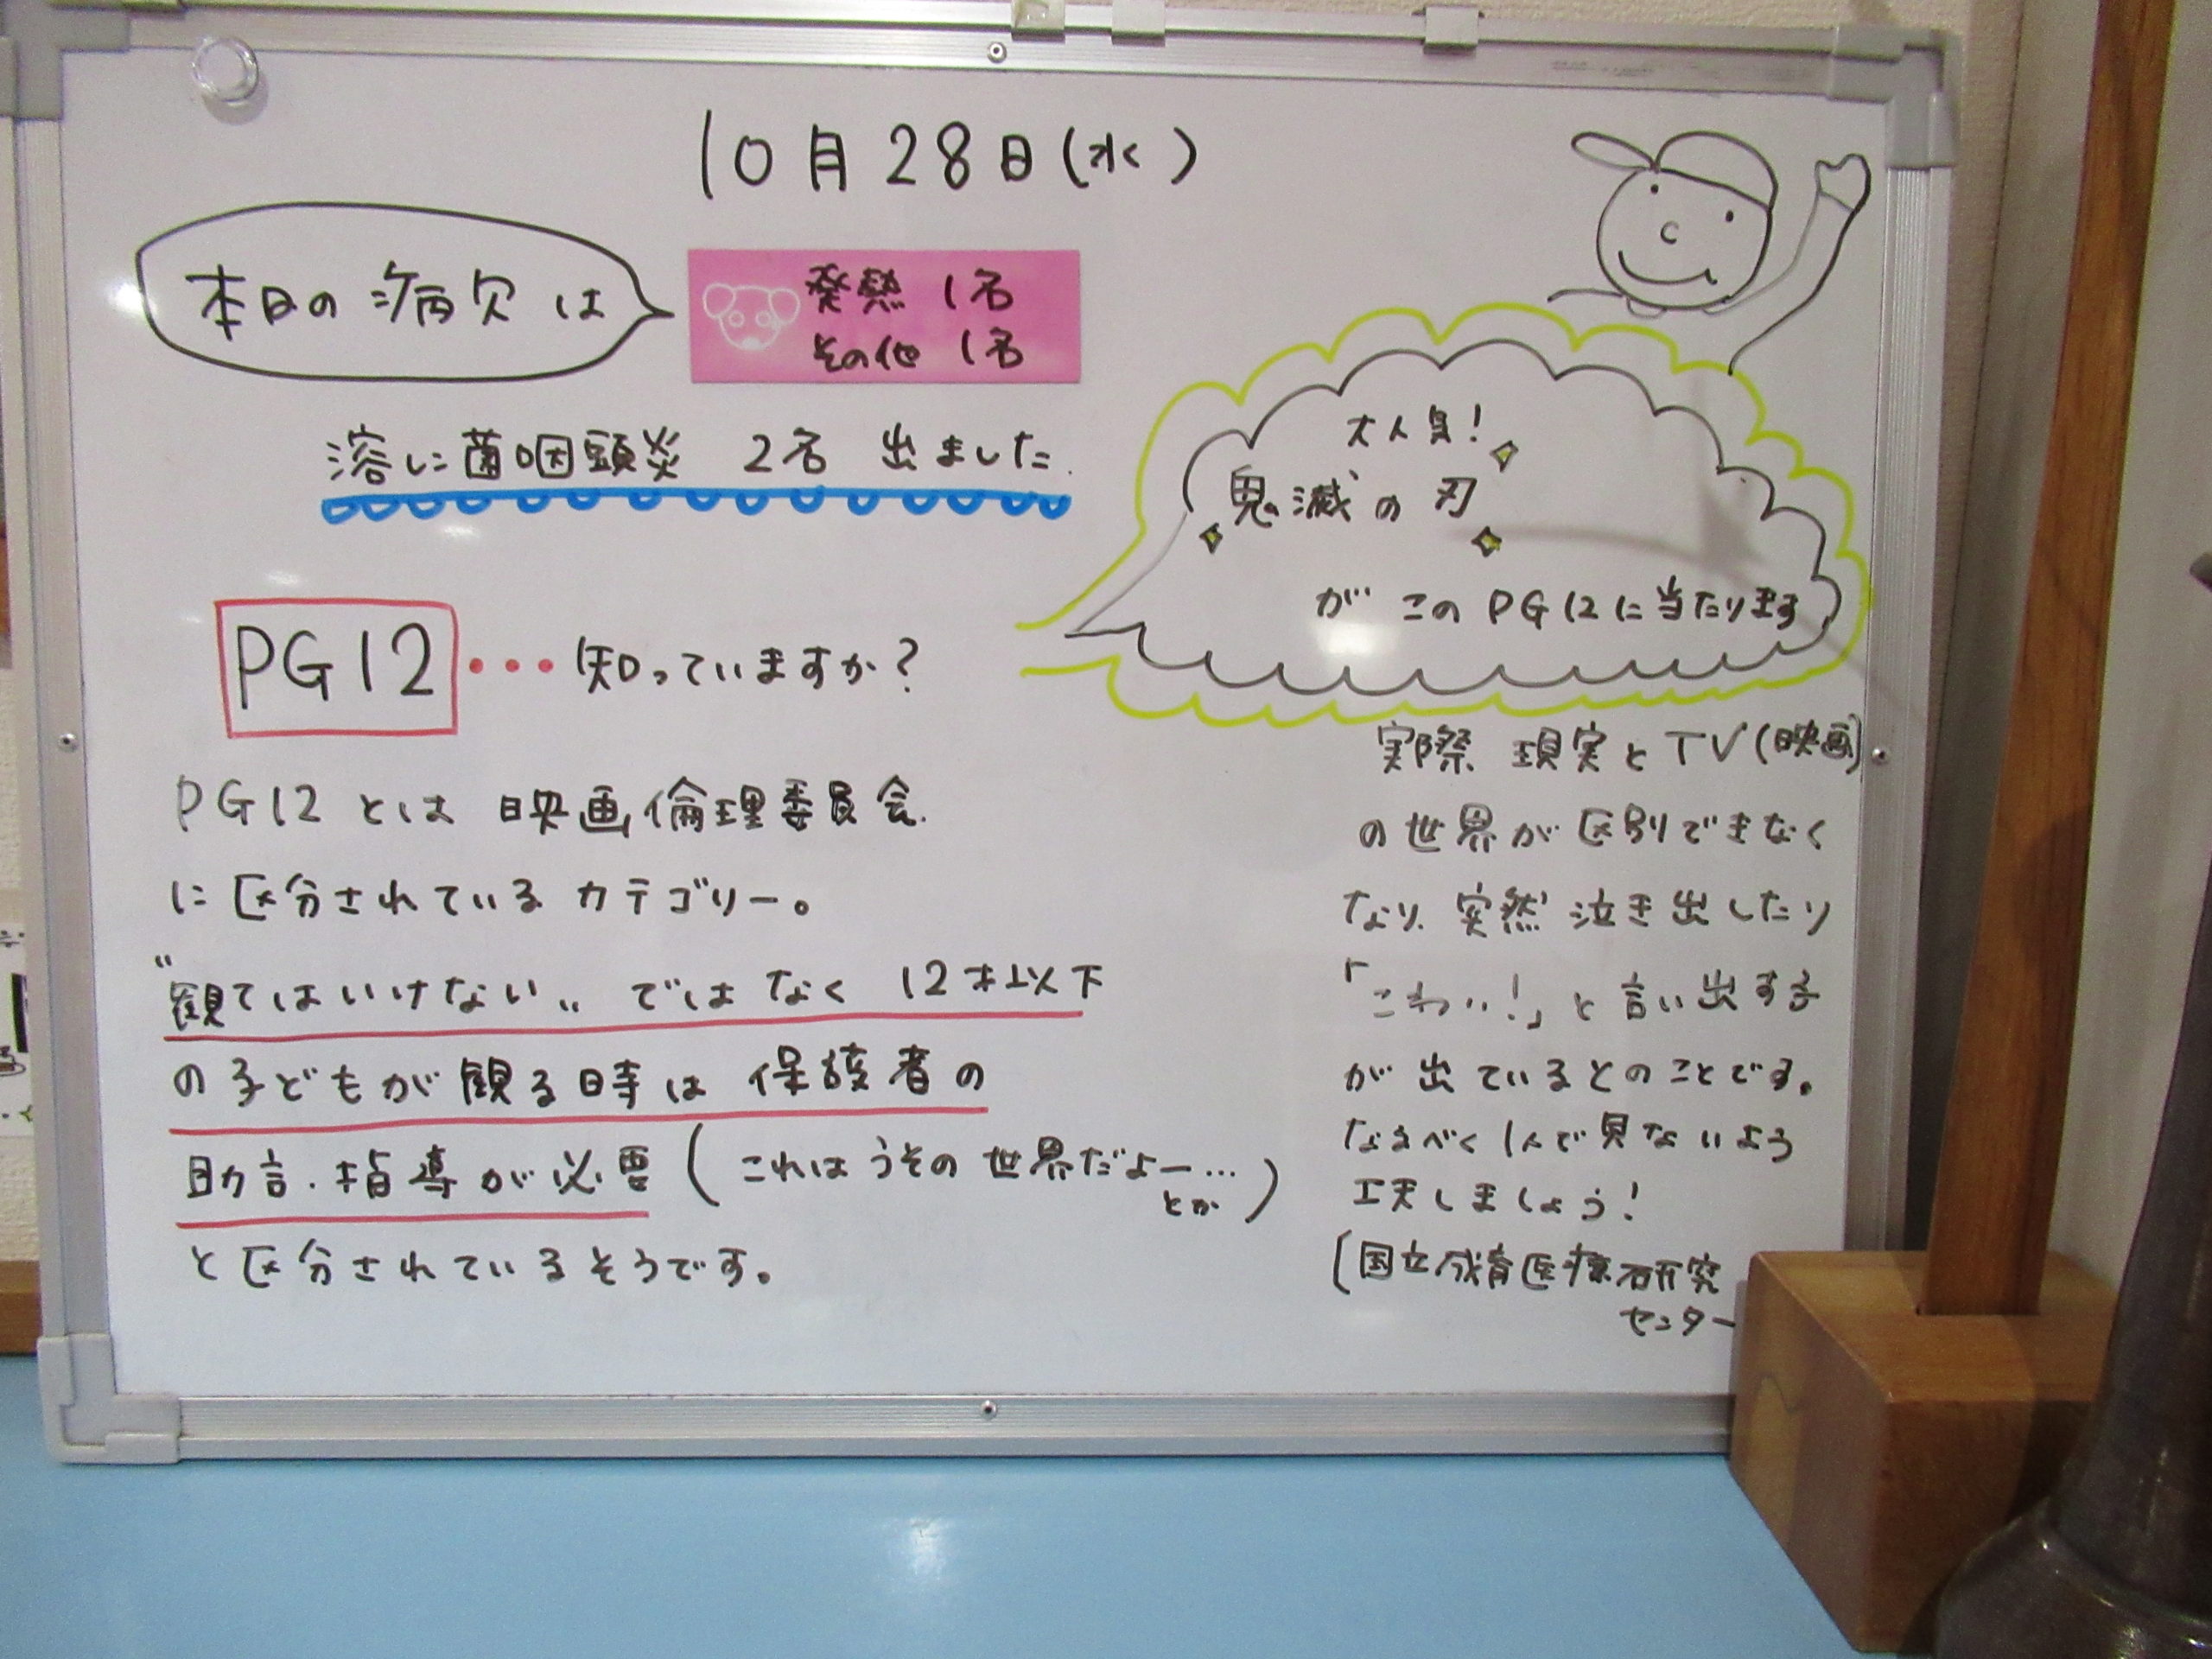 10月28日(水)
本日の病欠は
発熱 1名
その他 1名
溶レン菌咽頭炎 2名 出ました.
PG12・・・知っていますか?
PG12とは 映画倫理委員会.
に区分されているカテゴリー。
“観てはいけない〟ではなく 12才以下
の子どもが観る時は保護者の
助言.指導が必要(これはうその世界だよー…
とか)
と区分されているそうです。
大人気!
鬼滅の刃
がこのPG12に当たります
実際 現実とTV(映画)
の世界が区別できなく
なり、突然 泣き出したり
「こわい!」と言い出す子
が出ているとのことです。
なるべく1人で見ないよう
工夫しましょう!
(国立成育医療研究
センター